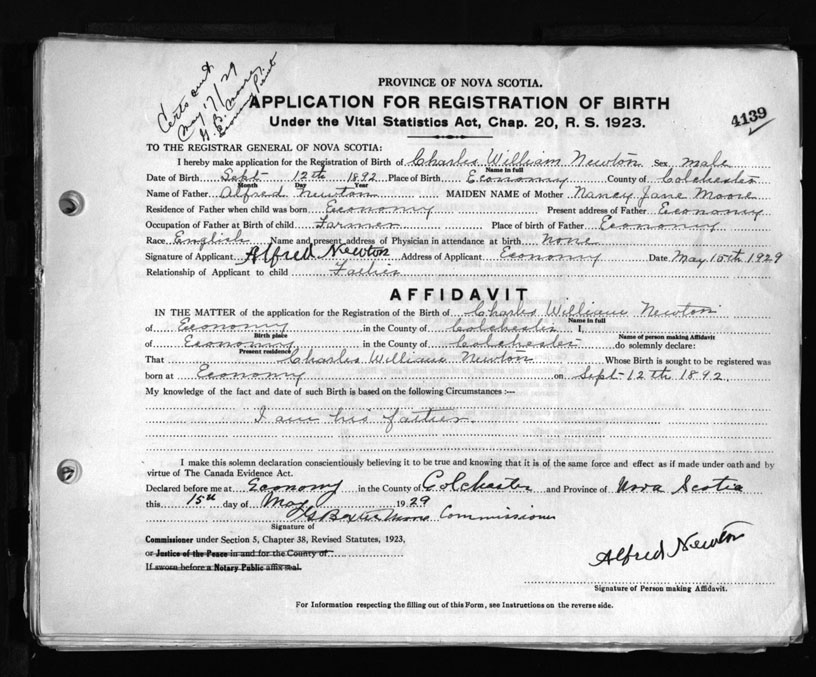 Certs out
May 17/29
PROVINCE OF NOVA SCOTIA.
APPLICATION FOR REGISTRATION OF BIRTH
Under the Vital Statistics Act, Chap. 20, R. S. 1923.
4139
TO THE REGISTRAR GENERAL OF NOVA SCOTIA:
I hereby make application for the Registration of Birth of Charles William Newton Sex male
Name in full
Date of Birth Sept 12th 1892 Place of Birth Economy County of Colchester
Month Day Year
Name of Father Alfred Newton MAIDEN NAME of Mother Nancy Jane Moore
Residence of Father when child was born Economy Present address of Father Economy
Occupation of Father at Birth of child Farmer Place of birth of Father Economy
Race English Name and present address of Physician in attendance at birth none
Signature of Applicant Alfred Newton Address of Applicant Economy Date May 15th 1929
Relationship of Applicant to child Father
AFFIDAVIT
IN THE MATTER of the application for the Registration of the Birth of Charles William Newton
Name in full
of Economy in the County of Colchester I,
Birth place Name of person making Affidavit
of Economy in the County of Colchester do solemnly declare:
Present residence
That Charles William Newton Whose Birth is sought to be registered was
born at Economy on Sept 12th 1892.
My knowledge of the fact and date of such Birth is based on the following Circumstances :—
I am his father.
I make this solemn declaration conscientiously believing it to be true and knowing that it is of the same force and effect as if made under oath and by
virtue of The Canada Evidence Act.
Declared before me at Economy in the County of Colchester and Province of Nova Scotia
this 15th day of May 1929
Commissioner
Signature of
Commissioner under Section 5, Chapter 38, Revised Statutes, 1923,
or Justice of the Peace in and for the County of
If sworn before a Notary Public affix seal.
Alfred Newton
Signature of Person making Affidavit.
For Information respecting the filling out of this Form, see Instructions on the reverse side.